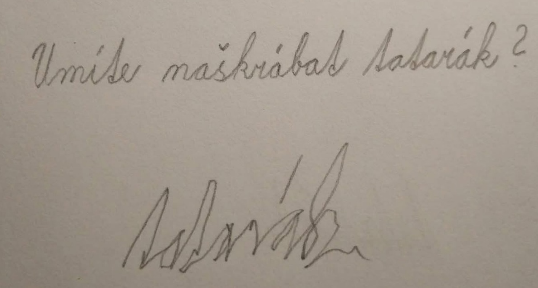 Umíte naškrábat tatarák?
tatarák